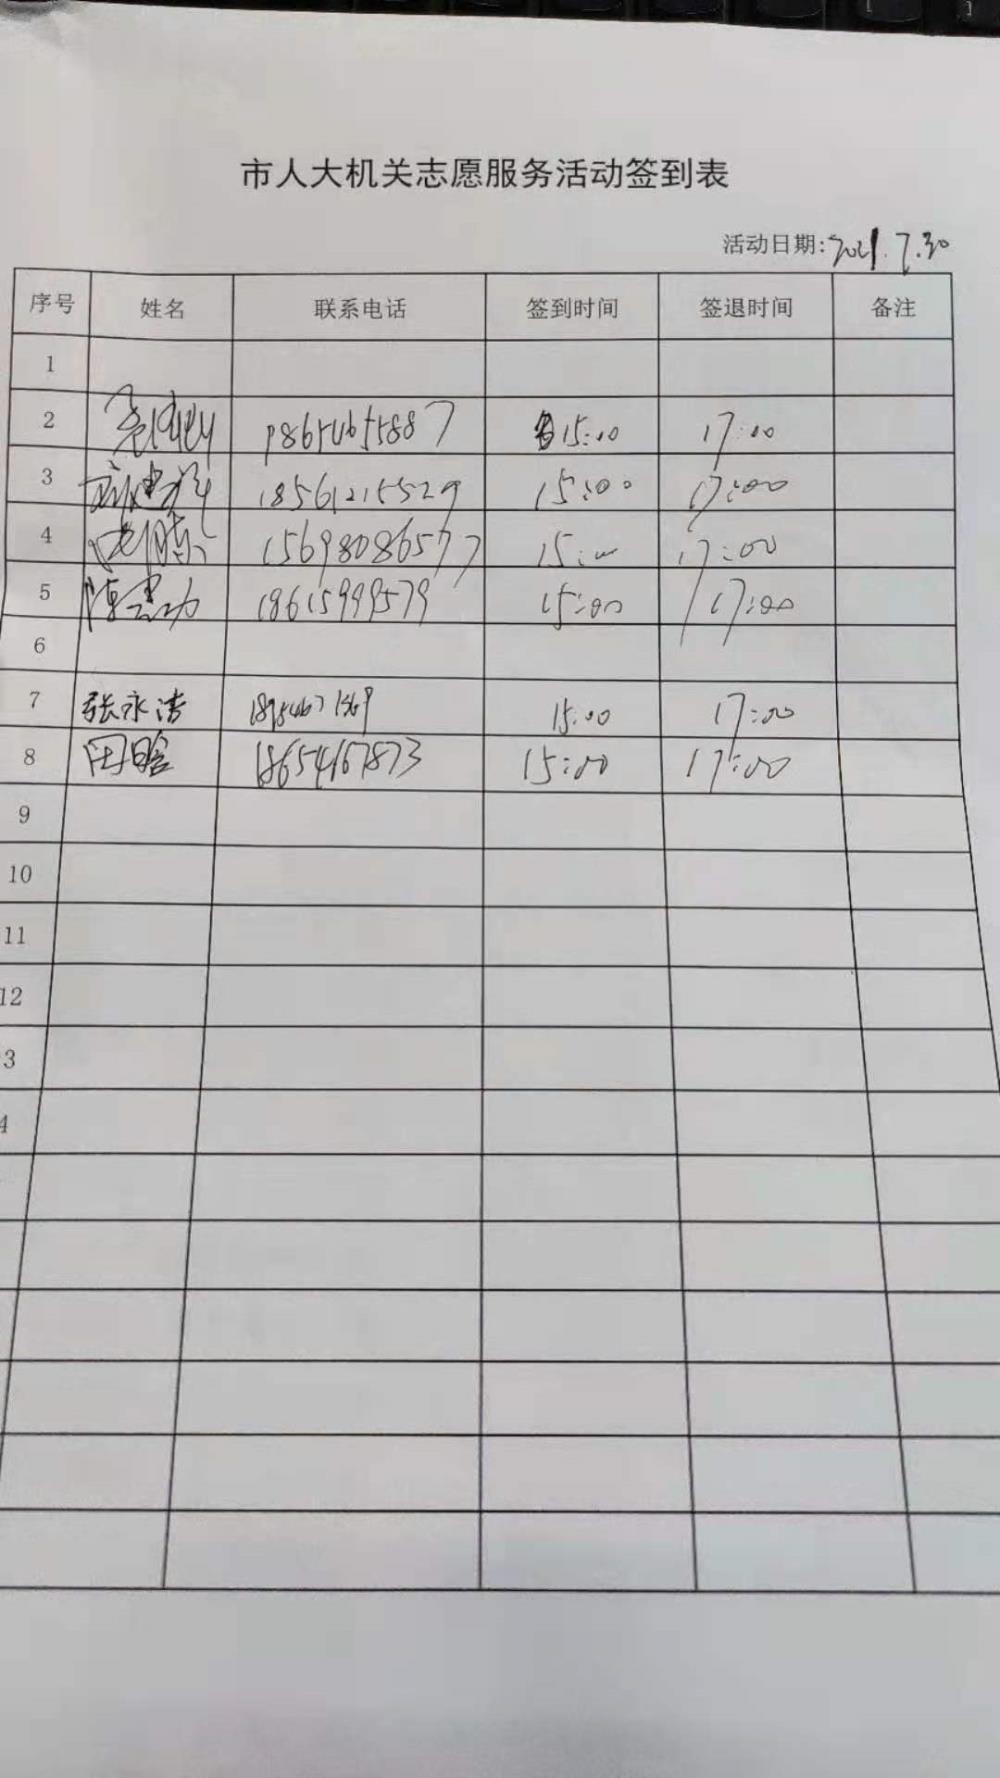 市人大机关志愿服务活动签到表
活动日期:2021.7.30
序号 姓名 联系电话 签到时间 签退时间 备注
1
2 15:00 17:00
3 18561215529 15:00 17:00
4 15698086577 15:00 17:00
5 18615999579 15:00 17:00
6
7 张永涛 15:00 17:00
8 田晗 18654667873 15:00 17:00
9
10
11
12
3
4